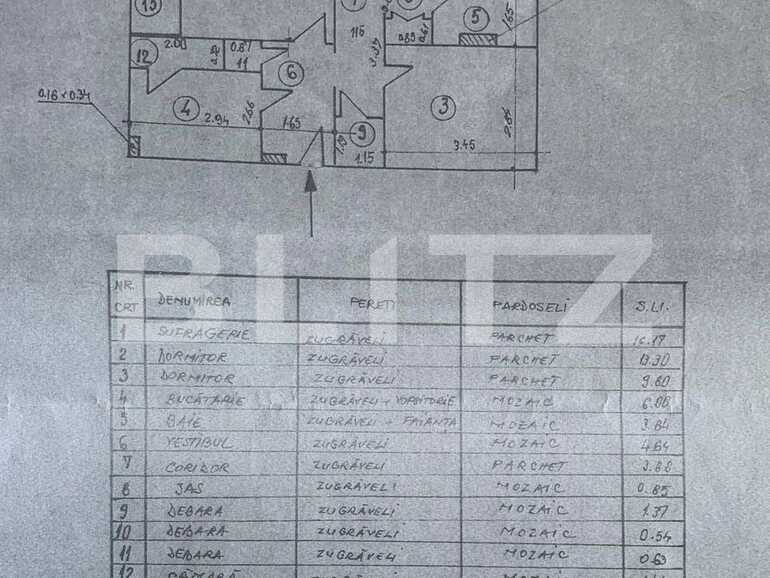 13
7
5
1.65
12
2.00
0.87
11
6
116
0.85
0.61
3
0.16 x 0.34
4
2.94
2.66
1.65
9
1.15
3.45
BLITZ
NR. CRT DENUMIREA PERETI PARDOSELI S.U.
1 SUFRAGERIE ZUGRĂVELI PARCHET 16.17
2 DORMITOR ZUGRĂVELI PARCHET 13.30
3 DORMITOR ZUGRĂVELI PARCHET 9.80
4 BUCĂTARIE ZUGRĂVELI + VOPSITORIE MOZAIC 6.08
5 BAIE ZUGRĂVELI + FAIANȚA MOZAIC 3.84
6 VESTIBUL ZUGRĂVELI MOZAIC 4.64
7 CORIDOR ZUGRĂVELI PARCHET 3.88
8 SAS ZUGRAVELI MOZAIC 0.85
9 DEBARA ZUGRĂVELI MOZAIC 1.37
10 DEBARA ZUGRĂVELI MOZAIC 0.54
11 DEBARA ZUGRĂVELI MOZAIC 0.63
12 CĂMARĂ